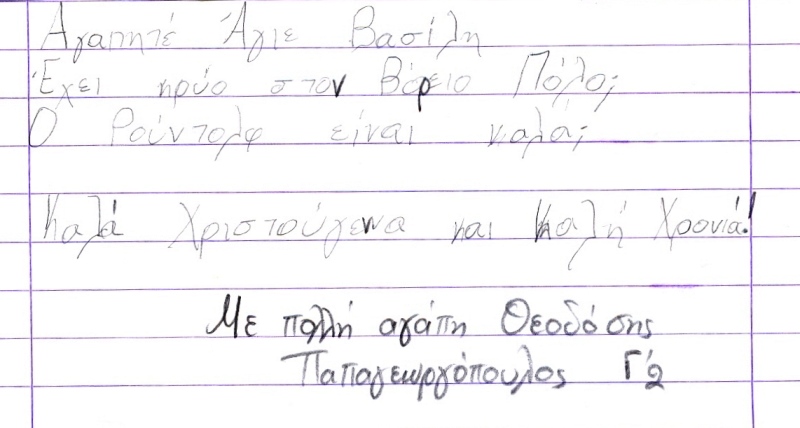 Αγαπητέ Άγιε Βασίλη
Έχει κρύο στον Βόρειο Πόλο;
Ο Ρούντολφ είναι καλά;
Καλά Χριστούγενα και Καλή Χρονιά!
Με πολλή αγάπη Θεοδόσης
Παπαγεωργόπουλος Γ'2